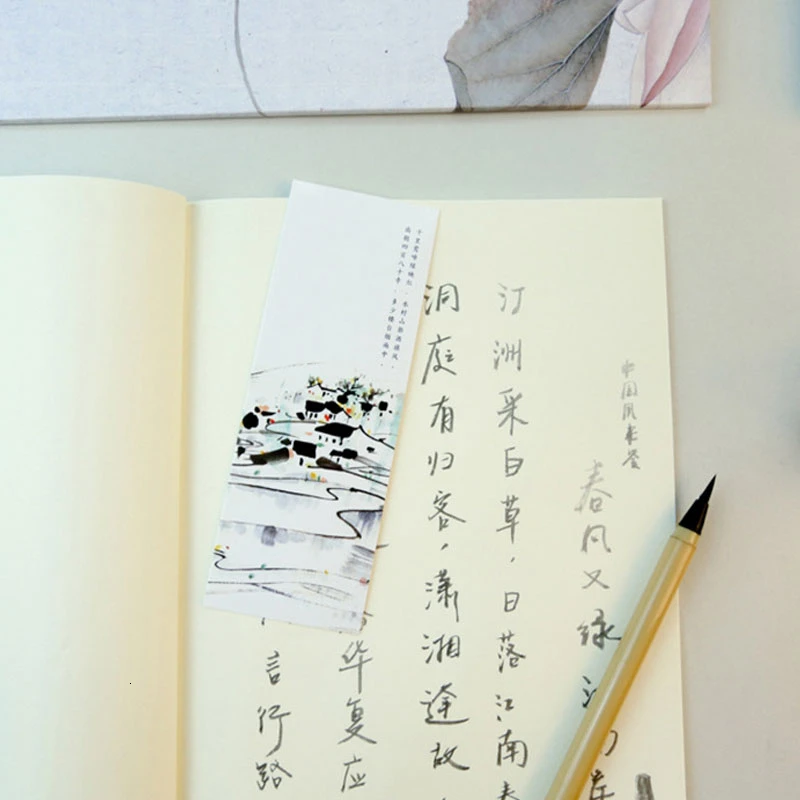 中国风
春风又绿江
汀洲采白草，日落江南春
洞庭有归客，潇湘逢故
华复应
言行路
千里莺啼绿映红，水村山郭酒旗风。
南朝四百八十寺，多少楼台烟雨中。